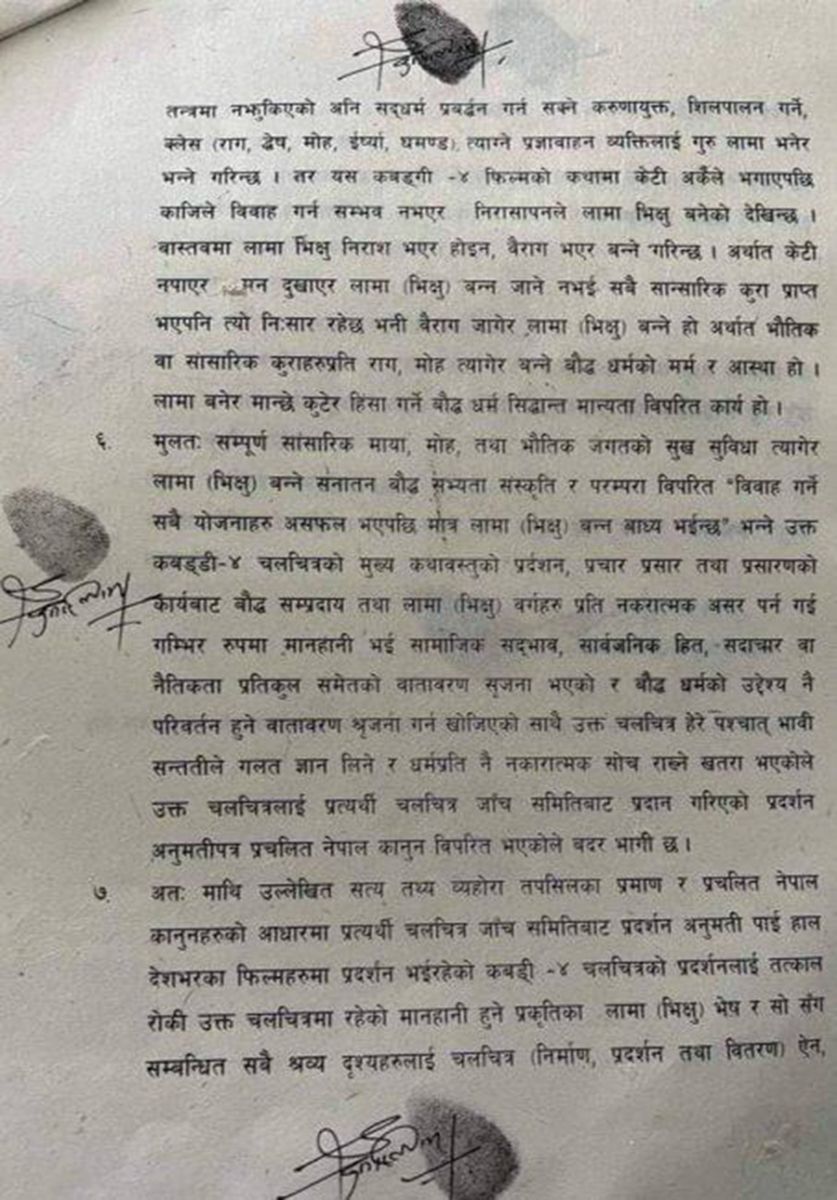 तन्त्रमा नझुकिएको अनि सद्धर्म प्रबर्द्धन गर्न सक्ने करुणायुक्त, शिलपालन गर्ने,
क्लेस (राग, द्वेष, मोह, ईर्ष्या, घमण्ड) त्याग्ने प्रज्ञावाहन व्यक्तिलाई गुरु लामा भनेर
भन्ने गरिन्छ । तर यस कबड्गी -४ फिल्मको कथामा केटी अर्कैले भगाएपछि
काजिले विवाह गर्न सम्भव नभएर निरासापनले लामा भिक्षु बनेको देखिन्छ ।
वास्तवमा लामा भिक्षु निराश भएर होइन, बैराग भएर बन्ने गरिन्छ । अर्थात केटी
नपाएर मन दुखाएर लामा (भिक्षु) बन्न जाने नभई सबै सान्सारिक कुरा प्राप्त
भएपनि त्यो नि:सार रहेछ भनी बैराग जागेर लामा (भिक्षु) बन्ने हो अर्थात भौतिक
वा सांसारिक कुराहरुप्रति राग, मोह त्यागेर बन्ने बौद्ध धर्मको मर्म र आस्था हो ।
लामा बनेर मान्छे कुटेर हिंसा गर्ने बौद्ध धर्म सिद्धान्त मान्यता विपरित कार्य हो ।
६. मुलत: सम्पूर्ण सांसारिक माया, मोह, तथा भौतिक जगतको सुख सुविधा त्यागेर
लामा (भिक्षु) बन्ने सनातन बौद्ध सभ्यता संस्कृति र परम्परा विपरित "विवाह गर्ने
सबै योजनाहरु असफल भएपछि मात्र लामा (भिक्षु) बन्न बाध्य भईन्छ" भन्ने उक्त
कबड्डी-४ चलचित्रको मुख्य कथावस्तुको प्रर्दशन, प्रचार प्रसार तथा प्रसारणको
कार्यबाट बौद्ध सम्प्रदाय तथा लामा (भिक्षु) वर्गहरु प्रति नकरात्मक असर पर्न गई
गम्भिर रुपमा मानहानी भई सामाजिक सद्भाव, सार्वजनिक हित, सदाचार वा
नैतिकता प्रतिकुल समेतको वातावरण सृजना भएको र बौद्ध धर्मको उद्देश्य नै
परिवर्तन हुने वातावरण श्रृजना गर्न खोजिएको साथै उक्त चलचित्र हेरे पश्चात् भावी
सन्ततीले गलत ज्ञान लिने र धर्मप्रति नै नकारात्मक सोच राख्ने खतरा भएकोले
उक्त चलचित्रलाई प्रत्यर्थी चलचित्र जाँच समितिबाट प्रदान गरिएको प्रदर्शन
अनुमतीपत्र प्रचलित नेपाल कानुन विपरित भएकोले बदर भागी छ ।
७. अत: माथि उल्लेखित सत्य तथ्य व्यहोरा तपसिलका प्रमाण र प्रचलित नेपाल
कानुनहरुको आधारमा प्रत्यर्थी चलचित्र जाँच समितिबाट प्रदर्शन अनुमती पाई हाल
देशभरका फिल्महरुमा प्रदर्शन भईरहेको कबड्डी -४ चलचित्रको प्रदर्शनलाई तत्काल
रोकी उक्त चलचित्रमा रहेको मानहानी हुने प्रकृतिका लामा (भिक्षु) भेष र सो सँग
सम्बन्धित सबै श्रव्य दृश्यहरुलाई चलचित्र (निर्माण, प्रदर्शन तथा वितरण) ऐन,